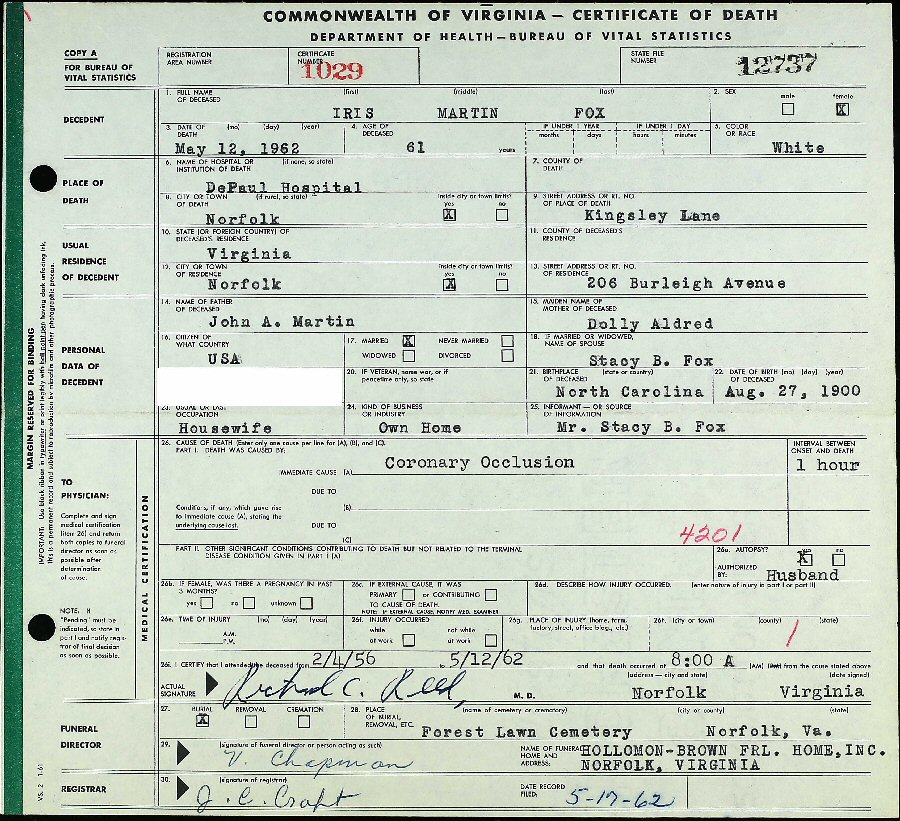 COMMONWEALTH OF VIRGINIA — CERTIFICATE OF DEATH
DEPARTMENT OF HEALTH — BUREAU OF VITAL STATISTICS
COPY A
FOR BUREAU OF
VITAL STATISTICS
REGISTRATION
AREA NUMBER
CERTIFICATE
NUMBER
1029
STATE FILE
NUMBER
12737
DECEDENT
1. FULL NAME
OF DECEASED
(first) (middle) (last)
IRIS MARTIN FOX
2. SEX
male female
X
3. DATE OF
DEATH
(mo) (day) (year)
May 12, 1962
4. AGE OF
DECEASED
61 years
IF UNDER 1 YEAR
months days
IF UNDER 1 DAY
hours minutes
5. COLOR
OR RACE
White
PLACE OF
DEATH
6. NAME OF HOSPITAL OR
INSTITUTION OF DEATH
(if none, so state)
DePaul Hospital
7. COUNTY OF
DEATH
8. CITY OR TOWN
OF DEATH
(if rural, so state)
Norfolk
inside city or town limits?
yes no
X
9. STREET ADDRESS OR RT. NO.
OF PLACE OF DEATH
Kingsley Lane
USUAL
RESIDENCE
OF DECEDENT
10. STATE (OR FOREIGN COUNTRY) OF
DECEASED'S RESIDENCE
Virginia
11. COUNTY OF DECEASED'S
RESIDENCE
12. CITY OR TOWN
OF RESIDENCE
Norfolk
inside city or town limits?
yes no
X
13. STREET ADDRESS OR RT. NO.
OF RESIDENCE
206 Burleigh Avenue
PERSONAL
DATA OF
DECEDENT
14. NAME OF FATHER
OF DECEASED
John A. Martin
15. MAIDEN NAME OF
MOTHER OF DECEASED
Dolly Aldred
16. CITIZEN OF
WHAT COUNTRY
USA
17. MARRIED X NEVER MARRIED
WIDOWED DIVORCED
18. IF MARRIED OR WIDOWED,
NAME OF SPOUSE
Stacy B. Fox
20. IF VETERAN, name war, or if
peacetime only, so state
21. BIRTHPLACE (state or country)
OF DECEASED
North Carolina
22. DATE OF BIRTH (mo) (day) (year)
OF DECEASED
Aug. 27, 1900
23. USUAL OR LAST
OCCUPATION
Housewife
24. KIND OF BUSINESS
OR INDUSTRY
Own Home
25. INFORMANT — OR SOURCE
OF INFORMATION
Mr. Stacy B. Fox
MARGIN RESERVED FOR BINDING
IMPORTANT: Use black ribbon in typewriter or print legibly with ball point pen having dark unfading ink,
this is a permanent record and subject to reproduction by microfilm and other photographic process.
TO
PHYSICIAN:
Complete and sign
medical certification
(item 26) and return
both copies to funeral
director as soon as
possible after
determination
of cause.
NOTE: If
"Pending" must be
indicated, so state in
part I and notify regis-
trar of final decision
as soon as possible.
MEDICAL CERTIFICATION
26. CAUSE OF DEATH (Enter only one cause per line for (A), (B), and (C).
PART I. DEATH WAS CAUSED BY:
IMMEDIATE CAUSE (A)
Coronary Occlusion
INTERVAL BETWEEN
ONSET AND DEATH
1 hour
DUE TO
Conditions, if any, which gave rise
to immediate cause (A), stating the
underlying cause last.
(B)
DUE TO
(C)
4201
PART II. OTHER SIGNIFICANT CONDITIONS CONTRIBUTING TO DEATH BUT NOT RELATED TO THE TERMINAL
DISEASE CONDITION GIVEN IN PART I (A)
26a. AUTOPSY?
yes no
X
AUTHORIZED
BY:
Husband
26b. IF FEMALE, WAS THERE A PREGNANCY IN PAST
3 MONTHS?
yes no unknown
26c. IF EXTERNAL CAUSE, IT WAS
PRIMARY or CONTRIBUTING
TO CAUSE OF DEATH.
NOTE: IF EXTERNAL CAUSE, NOTIFY MED. EXAMINER
26d. DESCRIBE HOW INJURY OCCURRED. (enter nature of injury in part I or part II)
26e. TIME OF INJURY (mo) (day) (year)
A.M.
P.M.
26f. INJURY OCCURRED
while
at work
not while
at work
26g. PLACE OF INJURY (home, farm,
factory, street, office bldg., etc.)
26h. (city or town) (county) (state)
26i. I CERTIFY that I attended the deceased from 2/4/56 to 5/12/62 and that death occurred at 8:00 A (AM) (PM) from the cause stated above
ACTUAL
SIGNATURE
Richard C. Reed, M. D.
(address — city and state) (date signed)
Norfolk Virginia
FUNERAL
DIRECTOR
27. BURIAL REMOVAL CREMATION
X
28. PLACE
OF BURIAL,
REMOVAL, ETC.
(name of cemetery or crematory) (city or county) (state)
Forest Lawn Cemetery Norfolk, Va.
29. (signature of funeral director or person acting as such)
V. Chapman
NAME OF FUNERAL
HOME AND
ADDRESS:
HOLLOMON-BROWN FRL. HOME, INC.
NORFOLK, VIRGINIA
REGISTRAR
30. (signature of registrar)
J. C. Croft
DATE RECORD
FILED:
5-17-62
VS. 2 1-61